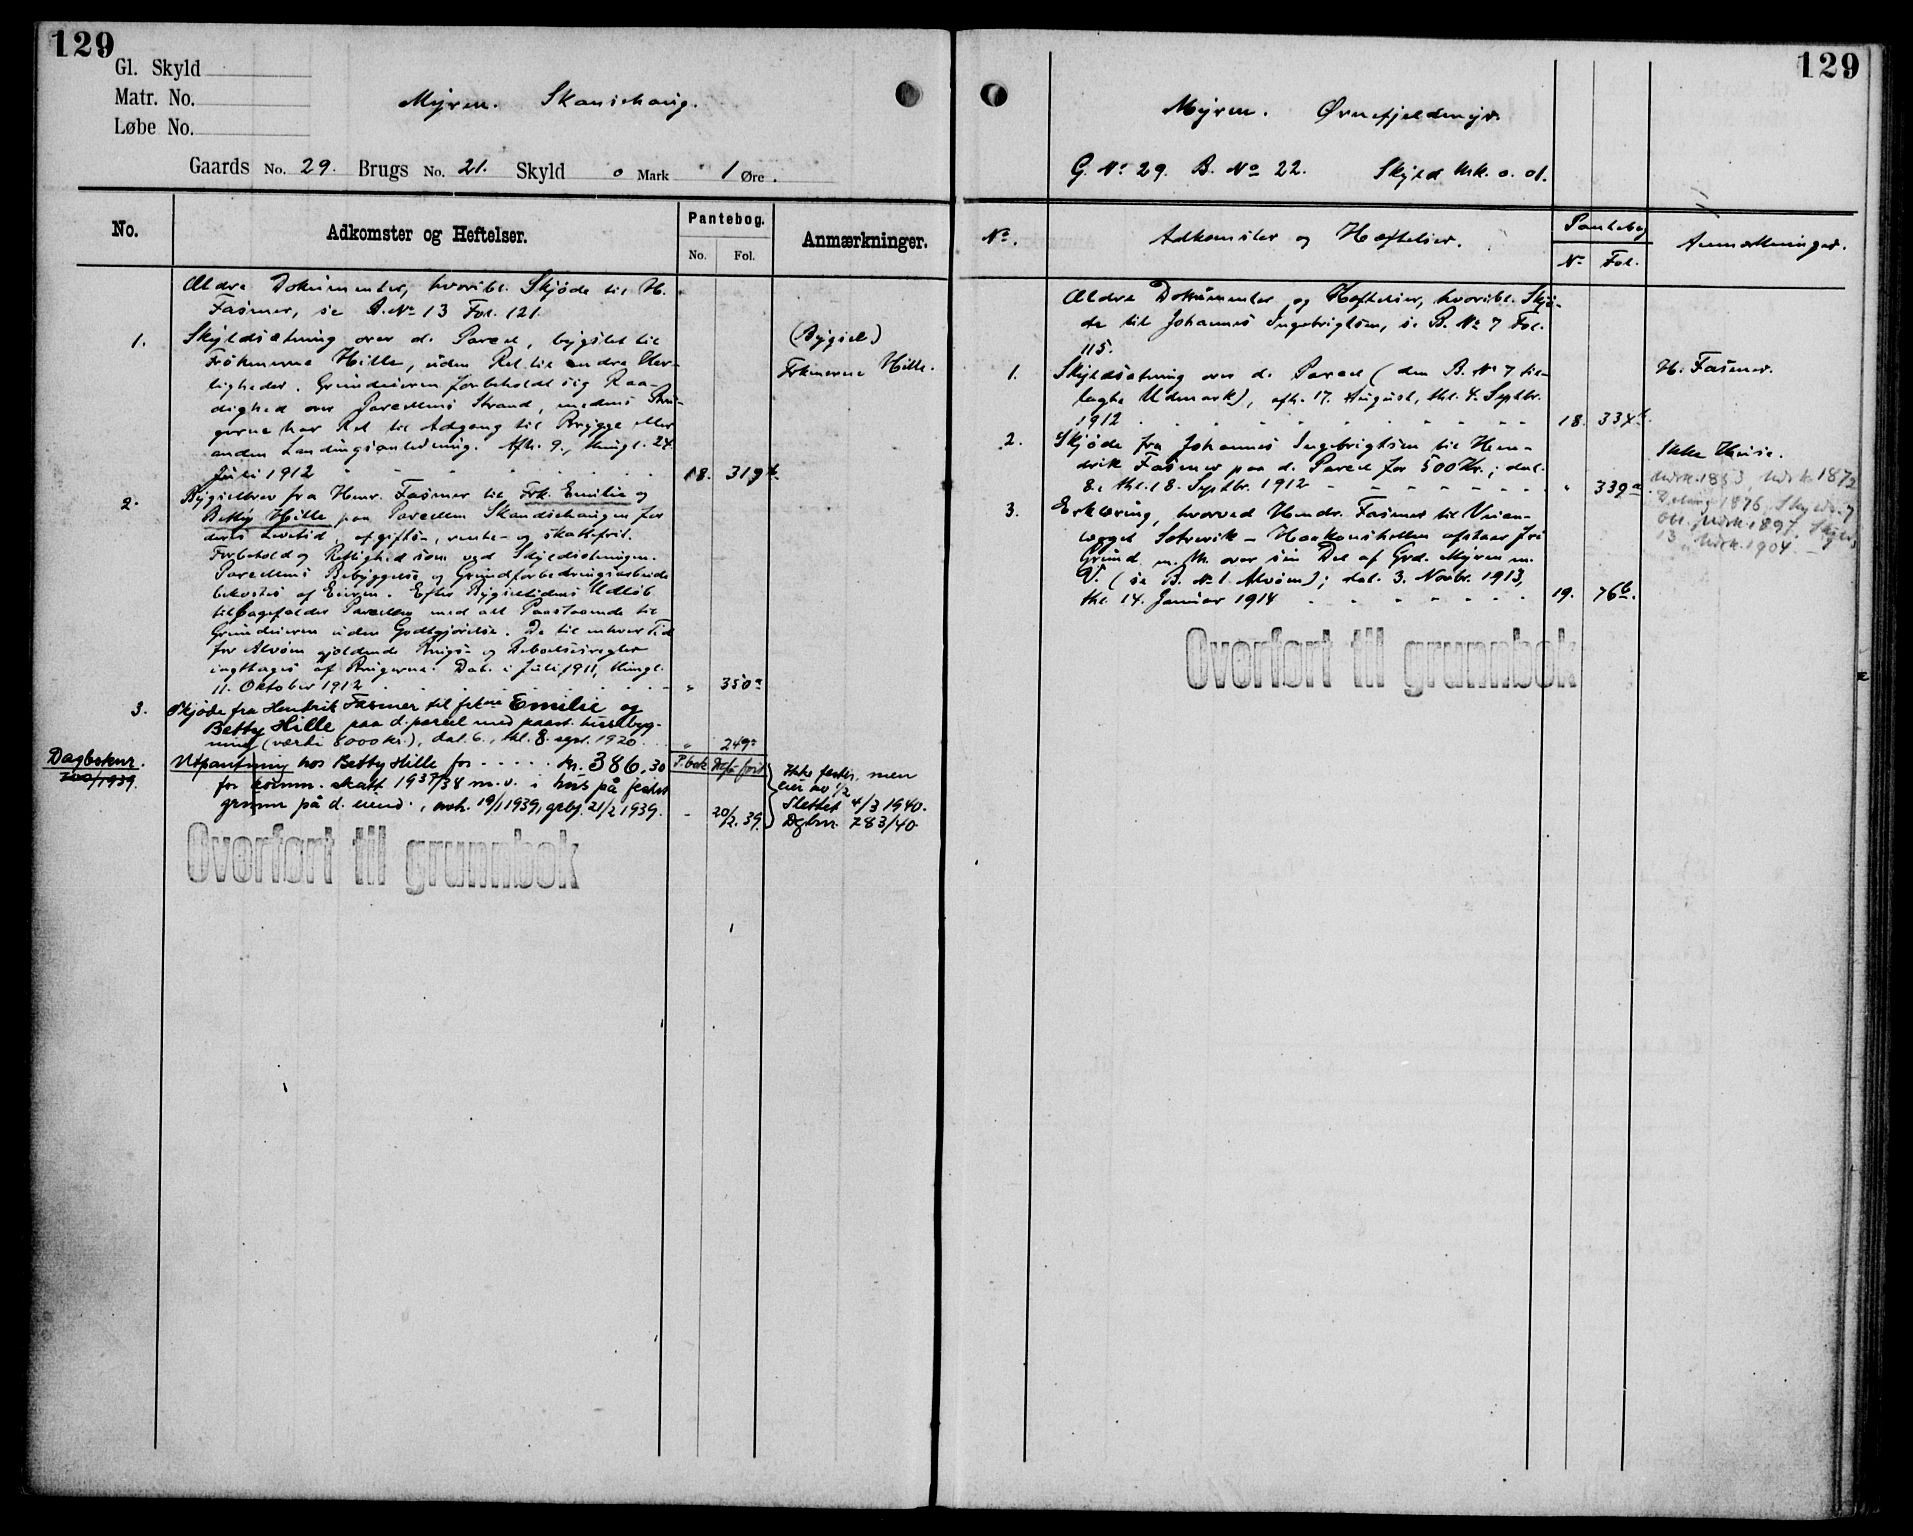 129
Gl. Skyld
Matr. No.
Løbe No.
Myren. Skansehaug.
Gaards No. 29. Brugs No. 21. Skyld 0 Mark 1 Øre.
No.
Adkomster og Heftelser.
Pantebog.
No. Fol.
Anmærkninger.
Ældre Dokumenter, hvoribl. Skjøde til H.
Fasmer, se B. No 13 Fol. 121.
1. Skyldsætning over d. Parcel, bygslet til (Bygsel)
Frøknerne Hille, uden Ret til andre Her- Frknerne Hille.
ligheder. Grundeieren forbeholdt sig Raa-
dighed over Parcellens Strand, medens Bru-
gerne har Ret til Adgang til Brygge eller
anden Landingsanledning. Afh. 9., thingl. 24.
Juli 1912 18. 319 b.
2. Bygselbrev fra Henr. Fasmer til Frk. Emilie og
Betty Hille paa Parcellen Skandsehaugen for
deres Levetid, afgifts-, rente- og skattefrit.
Forbehold og Rettighed som ved Skyldsætningen.
Parcellens Bebyggelse og Grundforbedringsarbeide
bekostes af Eieren. Efter Bygseltidens Udløb
tilbagefalder Parcellen med alt Paastaaende til
Grundeieren uden Godtgjørelse. De til enhver Tid
for Alvøen gjældende Brugs- og Beboelsesregler
iagttages af Brugerne. Dat. i Juli 1911, thingl.
11. Oktober 1912 " 350 a
3. Skjøde fra Hendrik Fasmer til frkne Emilie og
Betty Hille paa d. parcel med paast. husebyg-
ning (værdi 8000 kr.), dat. 6., thl. 8. sept. 1920. " 249 a
Dagboknr.
700/1939.
Utpantning hos Betty Hille for kr. 386,30 P.bok
for komm. skatt 1937/38 m.v. i hus på festet
grunn på d. eiend., avh. 19/1 1939, grbf. 21/2 1939. - 20/2.39.
Ikke fester, men
eier av 1/2
Slettet 4/3 1940.
Dgbnr. 783/40.
Overført til grunnbok
129
Myren. Ørnefjeldmyr.
G. No 29. B. No 22. Skyld Mk. 0.01.
No.
Adkomster og Hæftelser.
Pantebog
No Fol.
Anmærkninger.
Ældre Dokumenter og Hæftelser, hvoribl. Skjø-
de til Johannes Ingebrigtsen, se B. No 7 Fol.
115.
1. Skyldsætning over d. Parcel (den B. No 7 til- H. Fasmer.
lagte Udmark), afh. 17. August, thl. 4. Septbr.
1912 18. 334 b.
2. Skjøde fra Johannes Ingebrigtsen til Hen- Ikke Huse.
drik Fasmer paa d. Parcel for 500 Kr.; dat.
8., thl. 18. Septbr. 1912 " 339 a.
Udsk. 1853, Udsk. 1872
Deling 1876, Skylds. 7
Udsk. 1897.
13 Udsk. 1904.
3. Erklæring, hvorved Hendr. Fasmer til Veian-
lægget Sotrevik - Haakonshellen afstaar fri
Grund m. M. over sin Del af Grd. Myren m.
V. (se B. No 1. Alvøen); dat. 3. Novbr. 1913,
thl. 14. Januar 1914 19. 76 b.
Overført til grunnbok